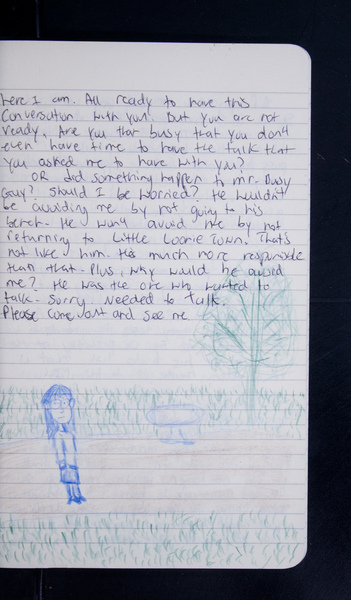 here I am. All ready to have this
Conversation with you. But you are not
ready. Are you that busy that you don't
even have time to have the talk that
you asked me to have with you?
OR did something happen to mr. Busy
Guy? Should I be worried? He wouldn't
be avoiding me by not going to his
bench. He won't avoid me by not
returning to Little Loonie Town. That's
not like him. He's much more responsible
than that. Plus, why would he avoid
me? He was the one who wanted to
talk. Sorry. Needed to talk.
Please come out and see me.